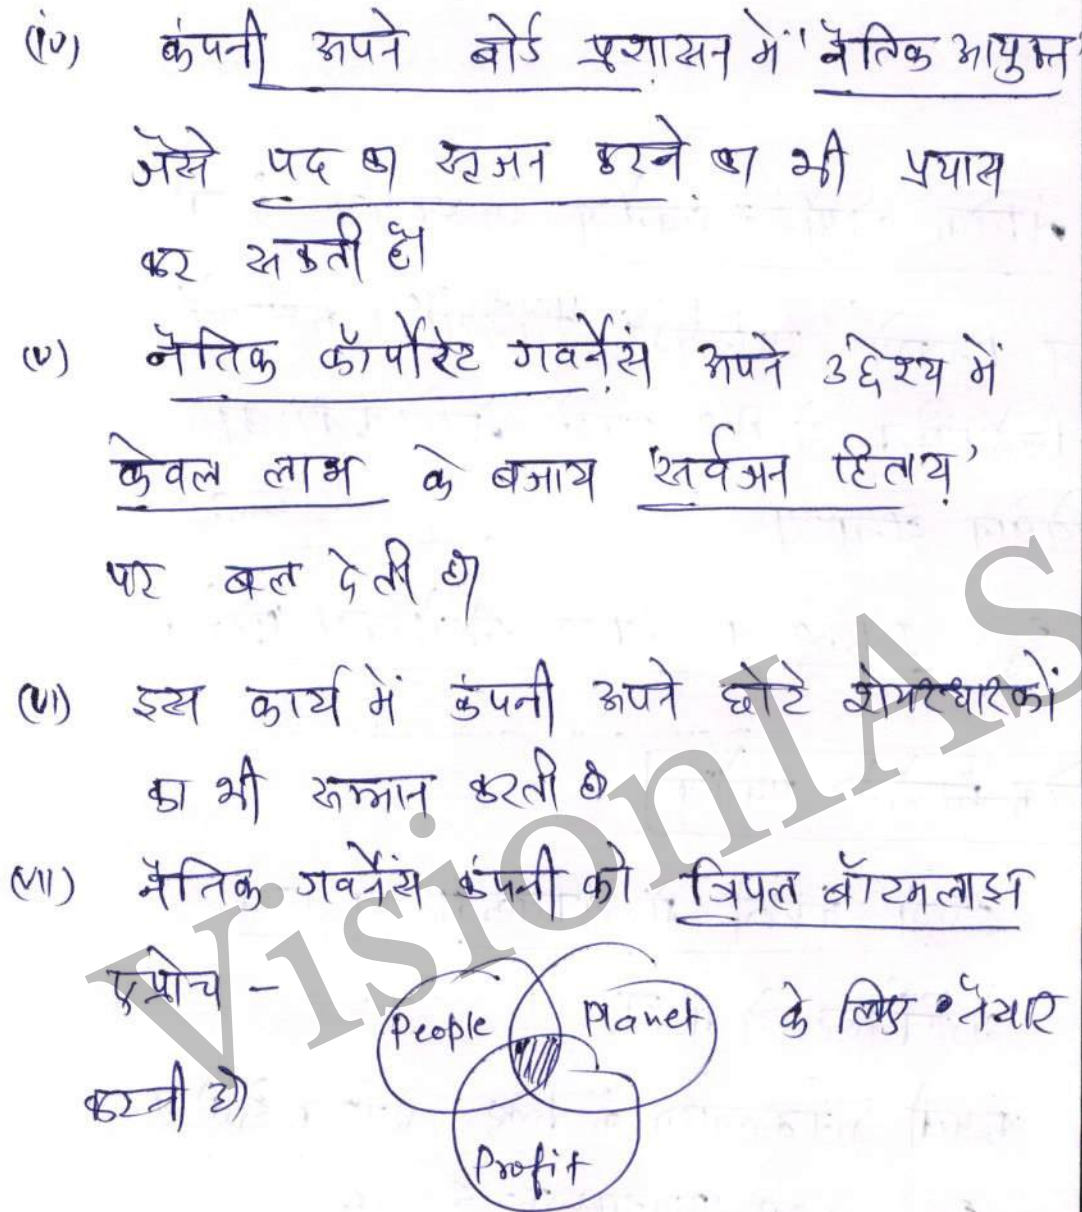 (iv) कंपनी अपने बोर्ड प्रशासन में "नैतिक आयुक्त"
जैसे पद का सृजन करने का भी प्रयास
कर सकती है।
(v) नैतिक कॉर्पोरेट गवर्नेंस अपने उद्देश्य में
केवल लाभ के बजाय 'सर्वजन हिताय'
पर बल देती है।
(vi) इस कार्य में कंपनी अपने छोटे शेयरधारकों
का भी सम्मान करती है
(vii) नैतिक गवर्नेंस कंपनी को त्रिपल बॉटमलाइन
एप्रोच - People Planet के लिए तैयार
करती है।
Profit
VisionIAS